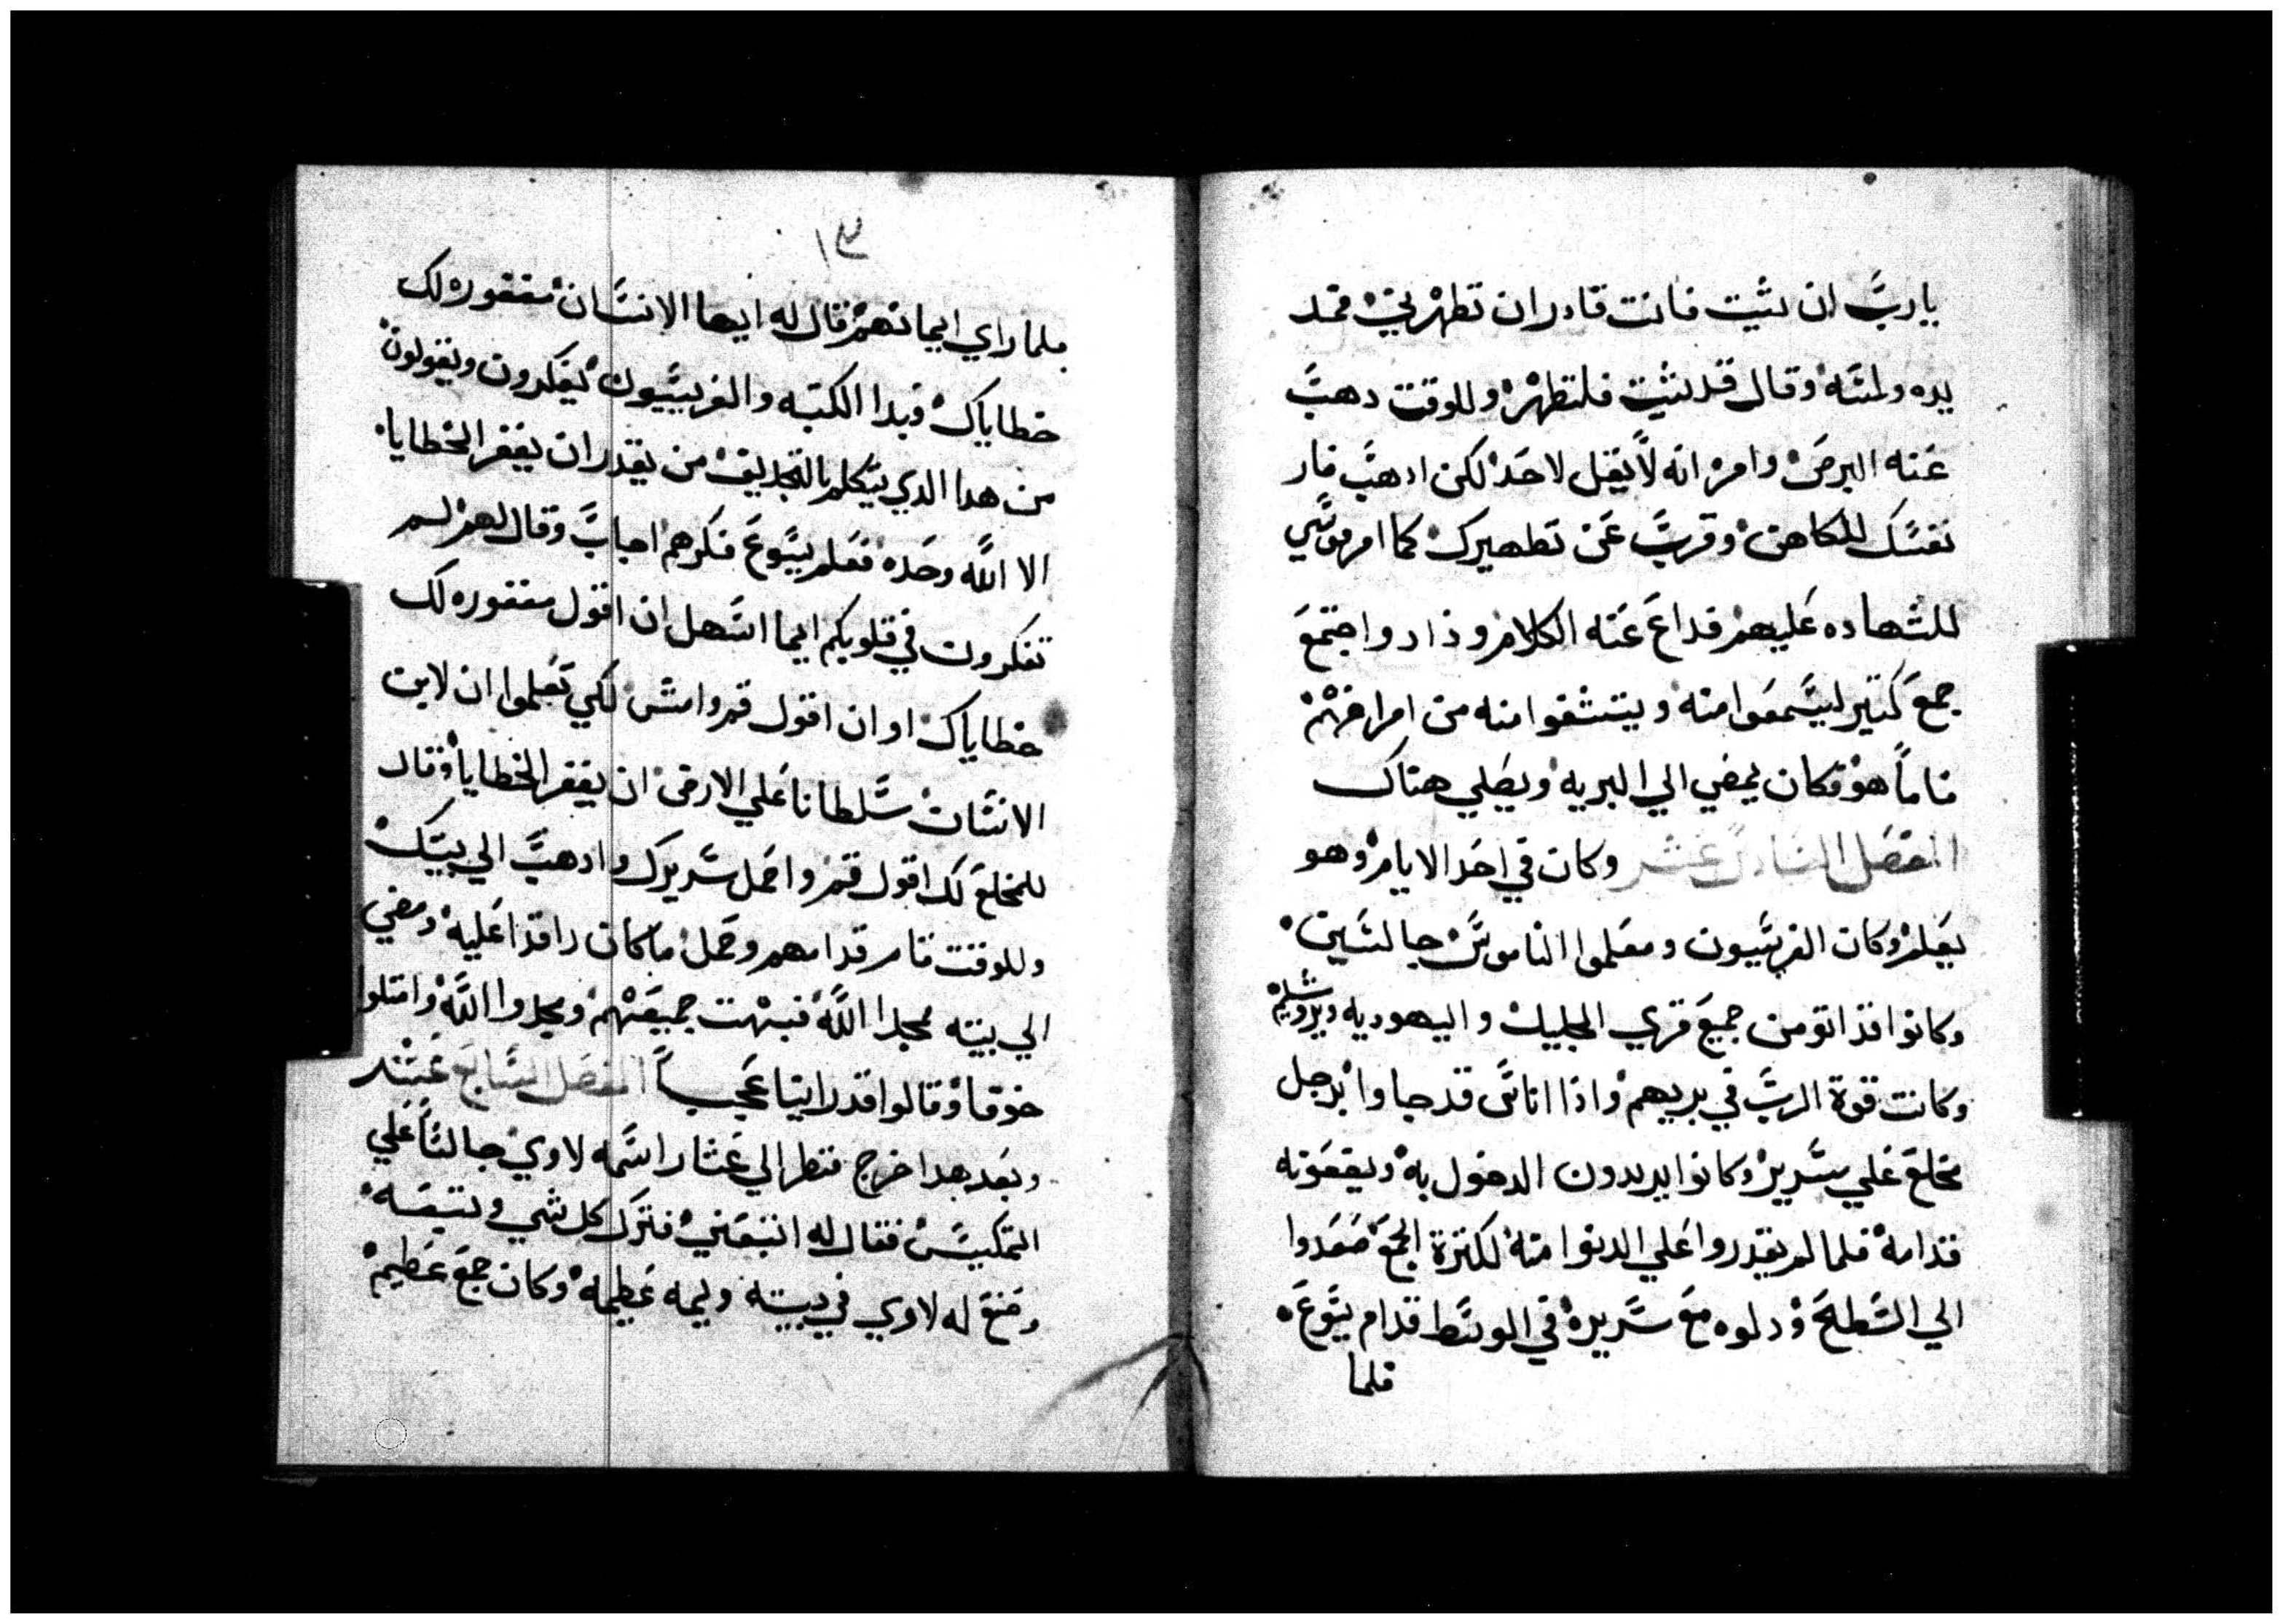 يارب ان شيت فانت قادر ان تطهرني فمد
يده ولمسه وقال قد شيت فلتطهر وللوقت دهب
عنه البرص وامره انه لا يقل لاحد لكن ادهب فار
نفسك للكاهن وقرب عن تطهيرك كما امر موسي
للشهاده عليهم فداع عنه الكلام وزاد واجتمع
جمع كتير ليسمعوا منه ويستشفوا منه من امراضهم
فاماً هو فكان يمضي الي البريه ويصلي هناك
الفصل السادس عشر وكان في احد الايام وهو
يعلم وكان الفريسيون ومعلموا الناموس جالسين
وكانوا قد اتو من جميع قري الجليل واليهوديه ويروشليم
وكانت قوة الرب في بريهم واذا اناس قد جاوا برجل
مخلع علي سرير وكانوا يريدون الدخول به ويضعونه
قدامه فلما لم يقدروا علي الدنوا منه لكترة الجمع صعدوا
الي السطح ودلوه مع سريره في الوسط قدام يسوع
فلما
فلما راي ايمانهم قال له ايها الانسان مغفوره لك
خطاياك فبدا الكتبه والفريسيون يفكرون ويقولون
من هدا الدي يتكلم بالتجديف من يقدر ان يغفر الخطايا
الا الله وحده فعلم يسوع فكرهم اجاب وقال لهم لم
تفكرون في قلوبكم ايما اسهل ان اقول مغفوره لك
خطاياك او ان اقول قم وامش لكي تعلموا ان لابن
الانسان سلطانا علي الارض ان يغفر الخطايا وقال
للمخلع لك اقول قم واحمل سريرك وادهب الي بيتك
وللوقت قام قدامهم وحمل ما كان راقدا عليه ومضي
الي بيته ممجدا الله فبهت جميعهم ومجدوا الله وامتلوا
خوفا وقالوا قد راينا عجباً الفصل السابع عشر
وبعد هدا خرج فنظر الي عشار اسمه لاوي جالساً علي
التمكيس فقال له اتبعني فترك كل شي وتبعه
وصنع له لاوي في بيته وليمه عظيمه وكان جمع عظيم